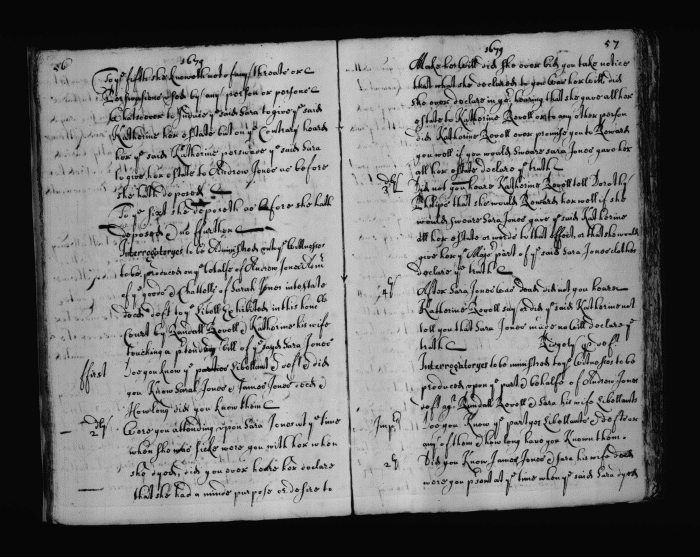 56
1679
To ye fifth she knoweth not of any threate or
Perswasions used by any person or persons
whatsoever to Induce ye said Sara to give ye said
Katherine her estate but on ye Contrary heard
her ye said Katherine perswade ye said Sara
to give her estate to Andrew Jones as before
she hath deposed
To ye sixt she deposeth as before she hath
deposed & no further
Interrogatoryes to be Administred unto ye Wittnesses
to be produced on ye behalfe of Andrew Jones Admr
of ye goods & Chattells of Sarah Jones intestate
deced deft to ye Libell Exhibited in this honble
Court by Randall Revell & Katherine his wife
touching a pretended will of ye said Sara Jones
ffirst
Doe you know ye parties Libellant & deft & did
you know Sarah Jones & James Jones deced &
How long did you know them
2ly
Were you attending upon Sara Jones at ye time
when she was sicke were you with her when
she dyed, did you ever heare her declare
that she had a minde purpose or desire to
57
1679
Make her Will did she ever bid you take notice
that what she declared to you was her Will did
she ever declare in yor hearing that she gave all her
estate to Katherine Revell or to any other person
did Katherine Revell ever promise you to Reward
you well if you would sweare Sara Jones gave her
all her estate declare ye truth
3ly
Did not you heare Katherine Revell tell Dorothy
that she would Reward her well if she
would sweare Sara Jones gave ye said Katherine
all her estate or words to that effect, or that she would
give her ye Major part of ye said Sara Jones clothes
declare ye truth
4ly
After Sara Jones was dead did not you heare
Katherine Revell say or did ye said Katherine not
tell you that Sara Jones made no will declare ye
truth
Interrogatoryes to be ministred to ye Wittnesses to be
produced upon ye part & behalfe of Andrew Jones
deft agt Randall Revell & Sara his wife Libellants
Imprs
Doe you know ye partyes Libellants & deft or
any of them & how long have you known them.
2ly
Did you know James Jones & Sara his wife deced
were you psent at ye time when ye said Sara dyed